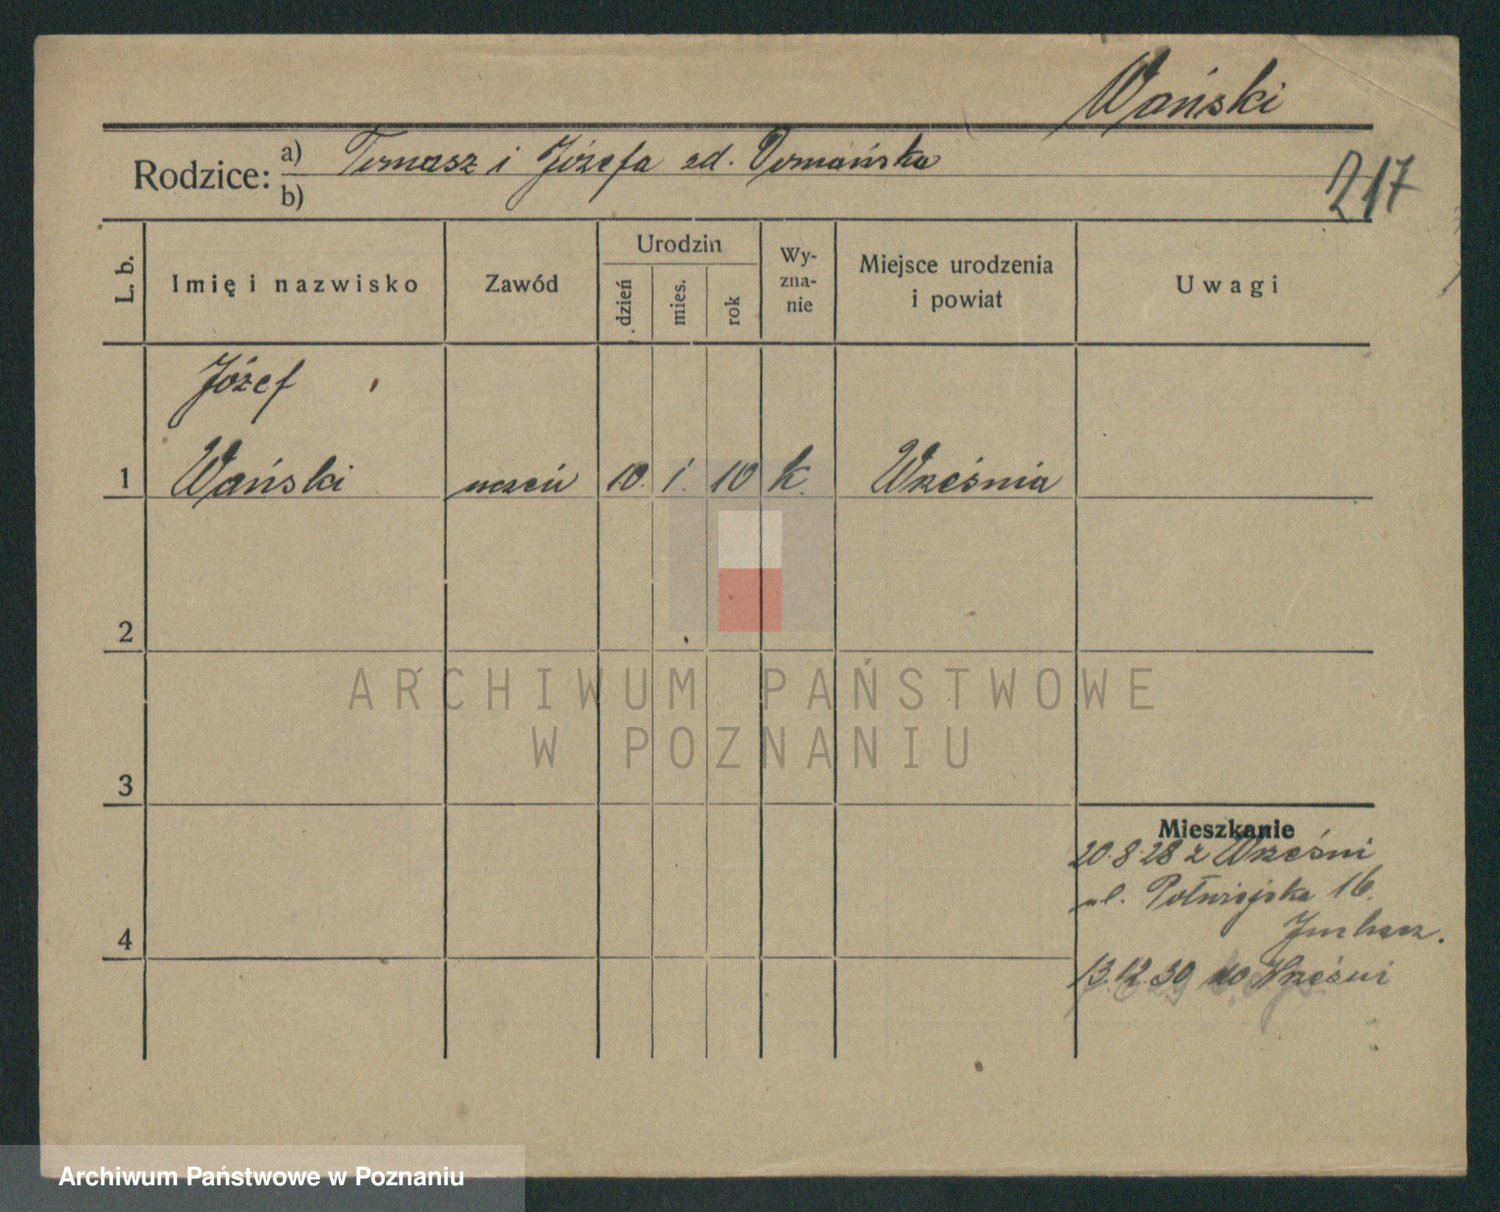 Wański
Rodzice: a) Tomasz i Józefa zd. Domańska
b)
217
L. b.
Imię i nazwisko
Zawód
Urodzin
dzień
mies.
rok
Wy-
zna-
nie
Miejsce urodzenia
i powiat
Uwagi
Józef
1 Wański uczeń 10. 1. 10 k. Września
2
3
4
Mieszkanie
20.8.28 z Wrześni
ul. Półwiejska 16.
13.12.30 do Wrześni
ARCHIWUM PAŃSTWOWE
W POZNANIU
Archiwum Państwowe w Poznaniu